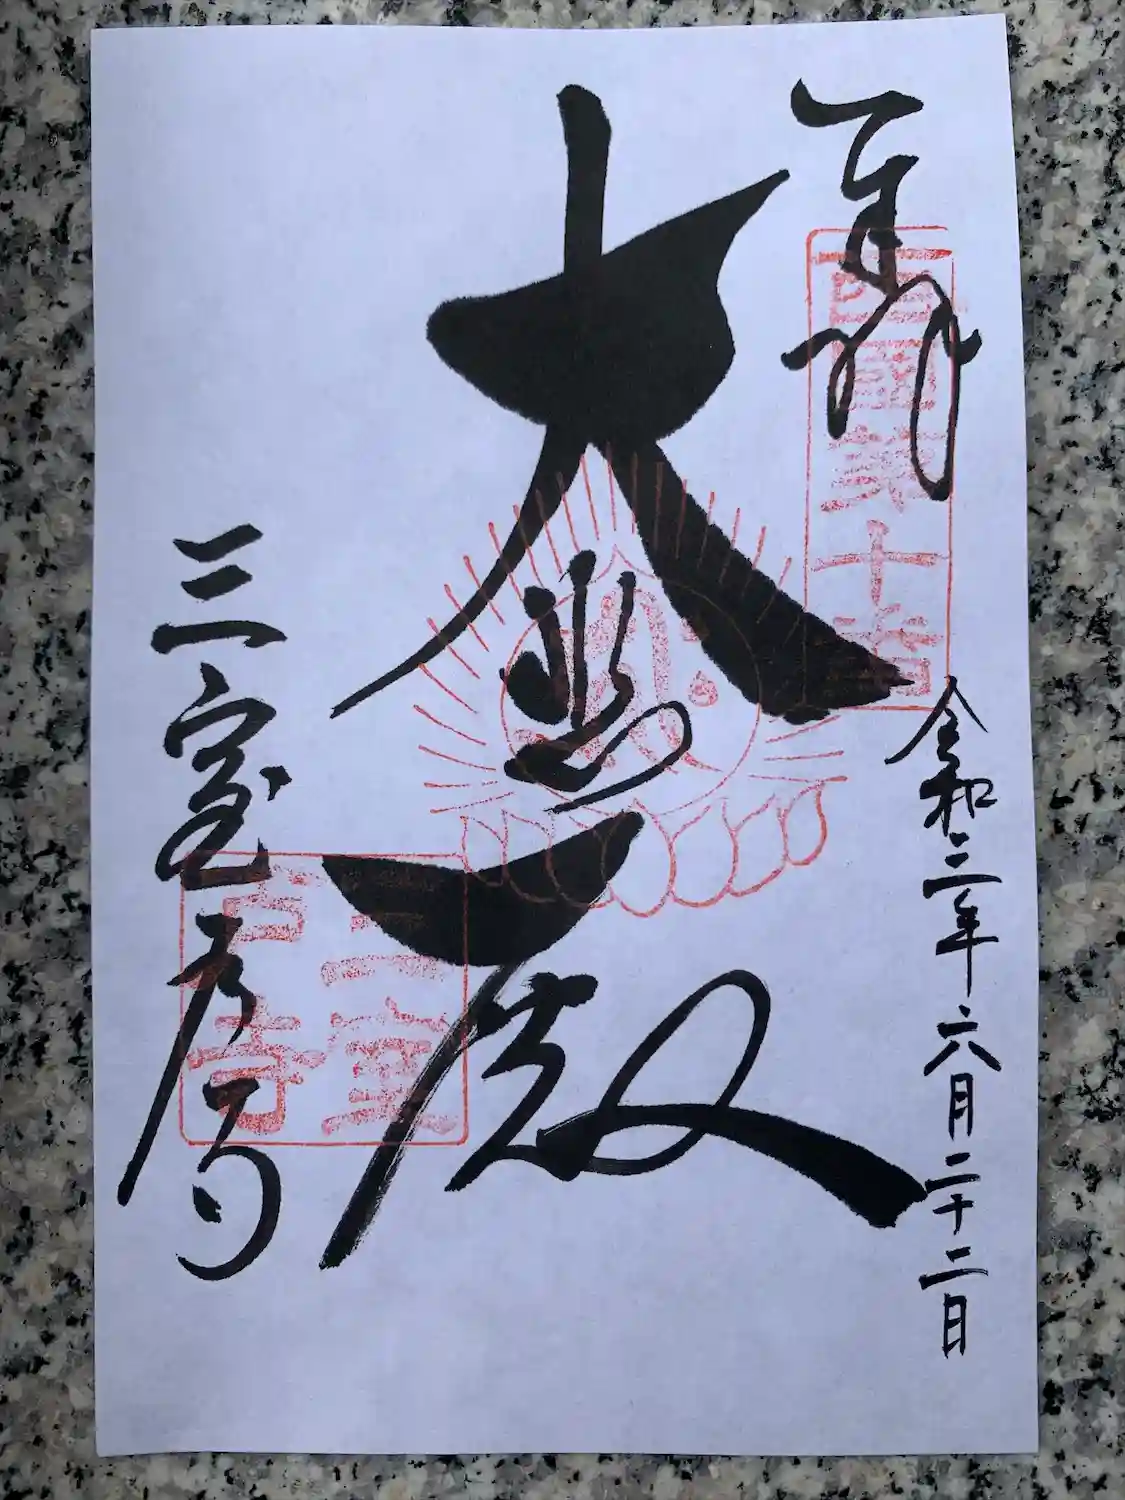 奉拝
西國第十番
令和三年六月二十二日
大悲殿
三室戸寺
三室
戸寺